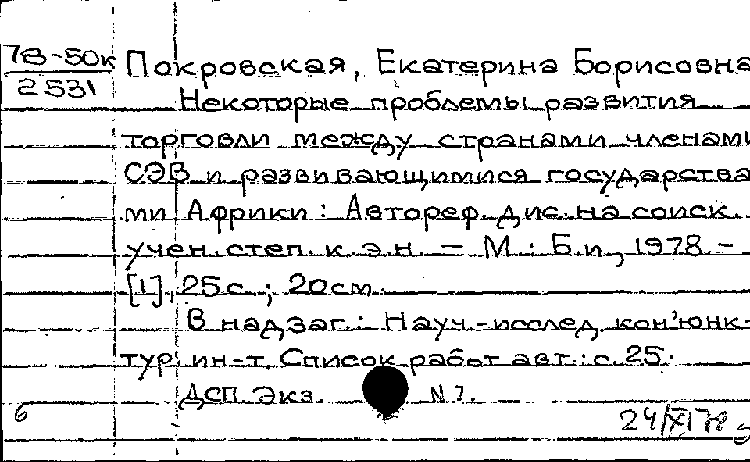 78-50к
2531
Покровская, Екатерина Борисовна
Некоторые проблемы развития
торговли между странами членами
СЭВ и развивающимися государства
ми Африки : Автореф. дис. на соиск.
учен. степ. к. э. н. – М. : Б. и, 1978. –
[1], 25 с. ; 20 см.
В надзаг. : Науч.-исслед. кон'юнк-
тур. ин-т. Список работ авт. : с. 25.
ДСП. Экз. N 7.
6
24/XI 78